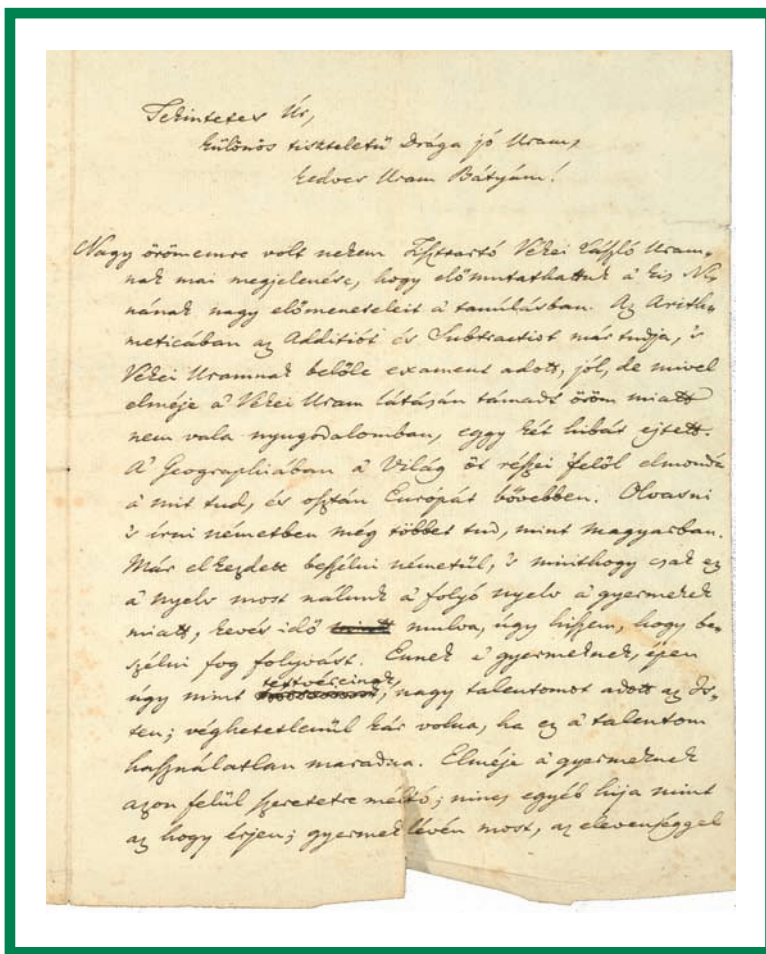 Tekintetes Úr,
különös tiszteletű Drága jó Uram,
kedves Uram Bátyám!
Nagy örömemre volt nekem Tiszttartó Vékei László Uram-
nak mai megjelenése, hogy előmutathattuk a' kis Ni-
nának nagy előmeneteleit a' tanúlásban. Az Arith-
meticában az Additiót és Subtractiot már tudja, 's
Vékei Uramnak belőle exament adott, jól, de mivel
elméje a' Vékei Uram látásán támadt öröm miatt
nem vala nyugodalomban, eggy két hibát ejtett.
A' Geographiában a' Világ öt részei felől elmondá
a mit tud, és osztán Európát bővebben. Olvasni
's írni németben még többet tud, mint magyarban.
Már elkezdett beszélni németűl, 's minthogy csak ez
a' nyelv most nálunk a' folyó nyelv a' gyermekek
miatt, kevés idő miatt mulva, úgy hiszem, hogy be-
szélni fog folyvást. Ennek a' gyermeknek, épen
úgy mint testvéreinek, nagy talentomot adott az Is-
ten; véghetetlenűl kár volna, ha ez a' talentom
használatlan maradna. Elméje a' gyermeknek
azon felül szeretetre méltó; nincs egyéb híja mint
az hogy érjen; gyermek lévén most, az elevenséggel